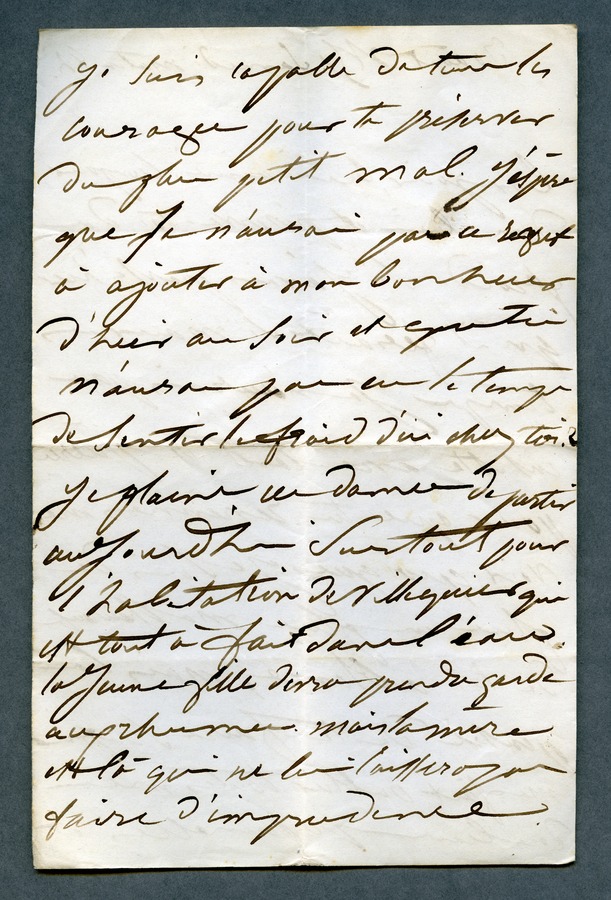 je suis capable de tous les
courages pour te préserver
du plus petit mal. J'éspère
que je n'aurai pas ce regret
à ajouter à mon bonheur
d'hier au soir et que tu
n'auras pas eu le temps
de sentir le froid d'ici chez toi.
Je plains ces dames de partir
aujourd'hui surtout pour
l'habitation de Villequier qui
est tout à fait dans l'eau.
la jeune fille devra prendre garde
aux rhumes. mais la mère
est là qui ne lui laissera pas
faire d'imprudence